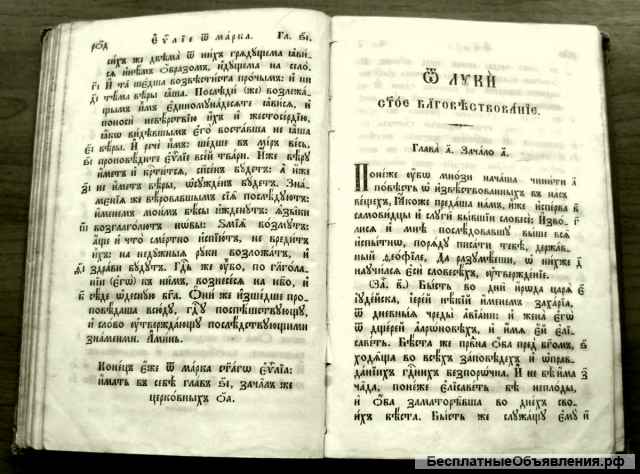 рѻ҃д Єѵⷢ҇лїе ѿ марка. Гл. ѕ҃і.
сиⷯ же двѣма ѿ ниⷯ грѧдꙋщема ꙗви-
сѧ инѣмъ ѻбразомъ, идꙋщема на село.
И та шедша возвѣстиста прочымъ: и ни
тѣма вѣры ꙗша. Послѣди же возлежа-
щымъ имъ единомꙋнадесѧте ꙗвисѧ, и
поноси невѣрствїю иⷯ и жестосердїю,
ꙗкѡ видѣвшымъ єго воставша не ꙗша
вѣры. И рече имъ: шедше въ мїръ весь,
проповѣдите єѵⷢ҇лїе всей твари. Иже вѣрꙋ
иметъ и крⷭ҇титсѧ, спⷭ҇енъ бꙋдетъ: а иже
не иметъ вѣры, ѡсꙋжденъ бꙋдетъ. Зна-
менїѧ же вѣровавшымъ сїѧ послѣдꙋютъ:
именемъ моимъ бѣсы ижденꙋтъ: ѧзыки
возглаголютъ новы: Ѕмїѧ возмꙋтъ:
аще и что смертно испїютъ, не вредитъ
иⷯ: на недꙋжныѧ рꙋки возложатъ, и
здрави бꙋдꙋтъ. Гдⷭ҇ь же ꙋбѡ, по глагола-
нїи єгѡ къ нимъ, вознесесѧ на нб҃о, и
сѣде ѡдеснꙋю бг҃а. Ѻни же изшедше про-
повѣдаша всюдꙋ, гдⷭ҇ꙋ поспѣшствꙋющꙋ,
и слово ꙋтверждающꙋ послѣдствꙋющими
знаменми. Аминь.
Конецъ єже ѿ марка ст҃агѡ єѵⷢ҇лїа:
имать въ себѣ главъ ѕ҃і, зачалъ же
церковныⷯ ѻ҃а.
Ѿ ЛꙊКИ
СТ҃ОЕ БЛ҃ГОВѢСТВОВАНЇЕ.
Глава а҃. Зачало а҃.
Понеже ꙋбѡ мнози начаша чинити
повѣсть ѡ извѣствованныхъ въ насъ
вещехъ, Ꙗкоже предаша намъ, иже исперва
самовидцы и слꙋги бывшїи словесѐ: Изво-
лисѧ и мнѣ послѣдовавшꙋ выше всѧ
испытнѡ, порѧдꙋ писати тебѣ, держав-
ный ѳеофіле, Да разꙋмѣеши, ѡ нихже
наꙋчилсѧ єси словесѣхъ, ꙋтвержденїе.
Бⷭ҇ть во дни ирѡда царѧ
іꙋдейска, іерей нѣкїй именемъ захарїа,
ѿ дневныѧ чреды авїани: и жена єгѡ
ѿ дщерей аарѡновѣхъ, и имѧ єй єлі-
савеⷴ҇ть. Бѣста же првⷣна ѻба пред бг҃омъ,
ходѧща во всѣхъ заповѣдехъ и ѡправ-
данїихъ гдⷭ҇нихъ безпорочна. И не бѣ има
чада, понеже єлісаветь бѣ неплоды,
и ѻба заматорѣвша во днехъ сво-
ихъ бѣста. Бысть же слꙋжащꙋ ємꙋ и
БесплатныеОбъявления.рф